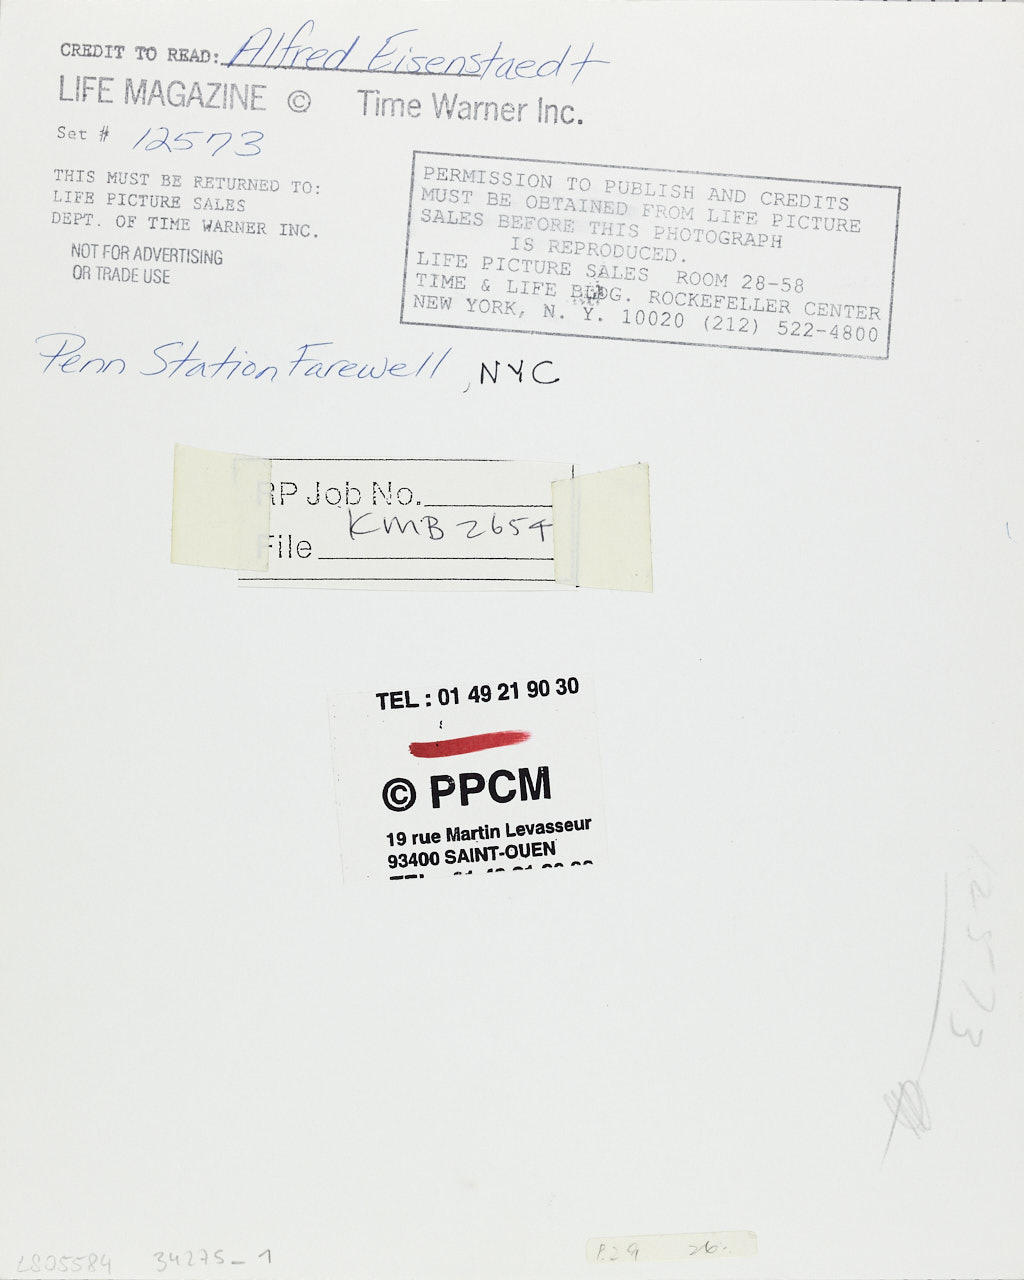 CREDIT TO READ: Alfred Eisenstaedt
LIFE MAGAZINE © Time Warner Inc.
Set # 12573
THIS MUST BE RETURNED TO:
LIFE PICTURE SALES
DEPT. OF TIME WARNER INC.
NOT FOR ADVERTISING
OR TRADE USE
PERMISSION TO PUBLISH AND CREDITS
MUST BE OBTAINED FROM LIFE PICTURE
SALES BEFORE THIS PHOTOGRAPH
IS REPRODUCED.
LIFE PICTURE SALES ROOM 28-58
TIME & LIFE BLDG. ROCKEFELLER CENTER
NEW YORK, N. Y. 10020 (212) 522-4800
Penn Station Farewell, NYC
RP Job No.
KMB 2654
File
TEL : 01 49 21 90 30
© PPCM
19 rue Martin Levasseur
93400 SAINT-OUEN
12573
LS05584 34275-1
P.29 26.